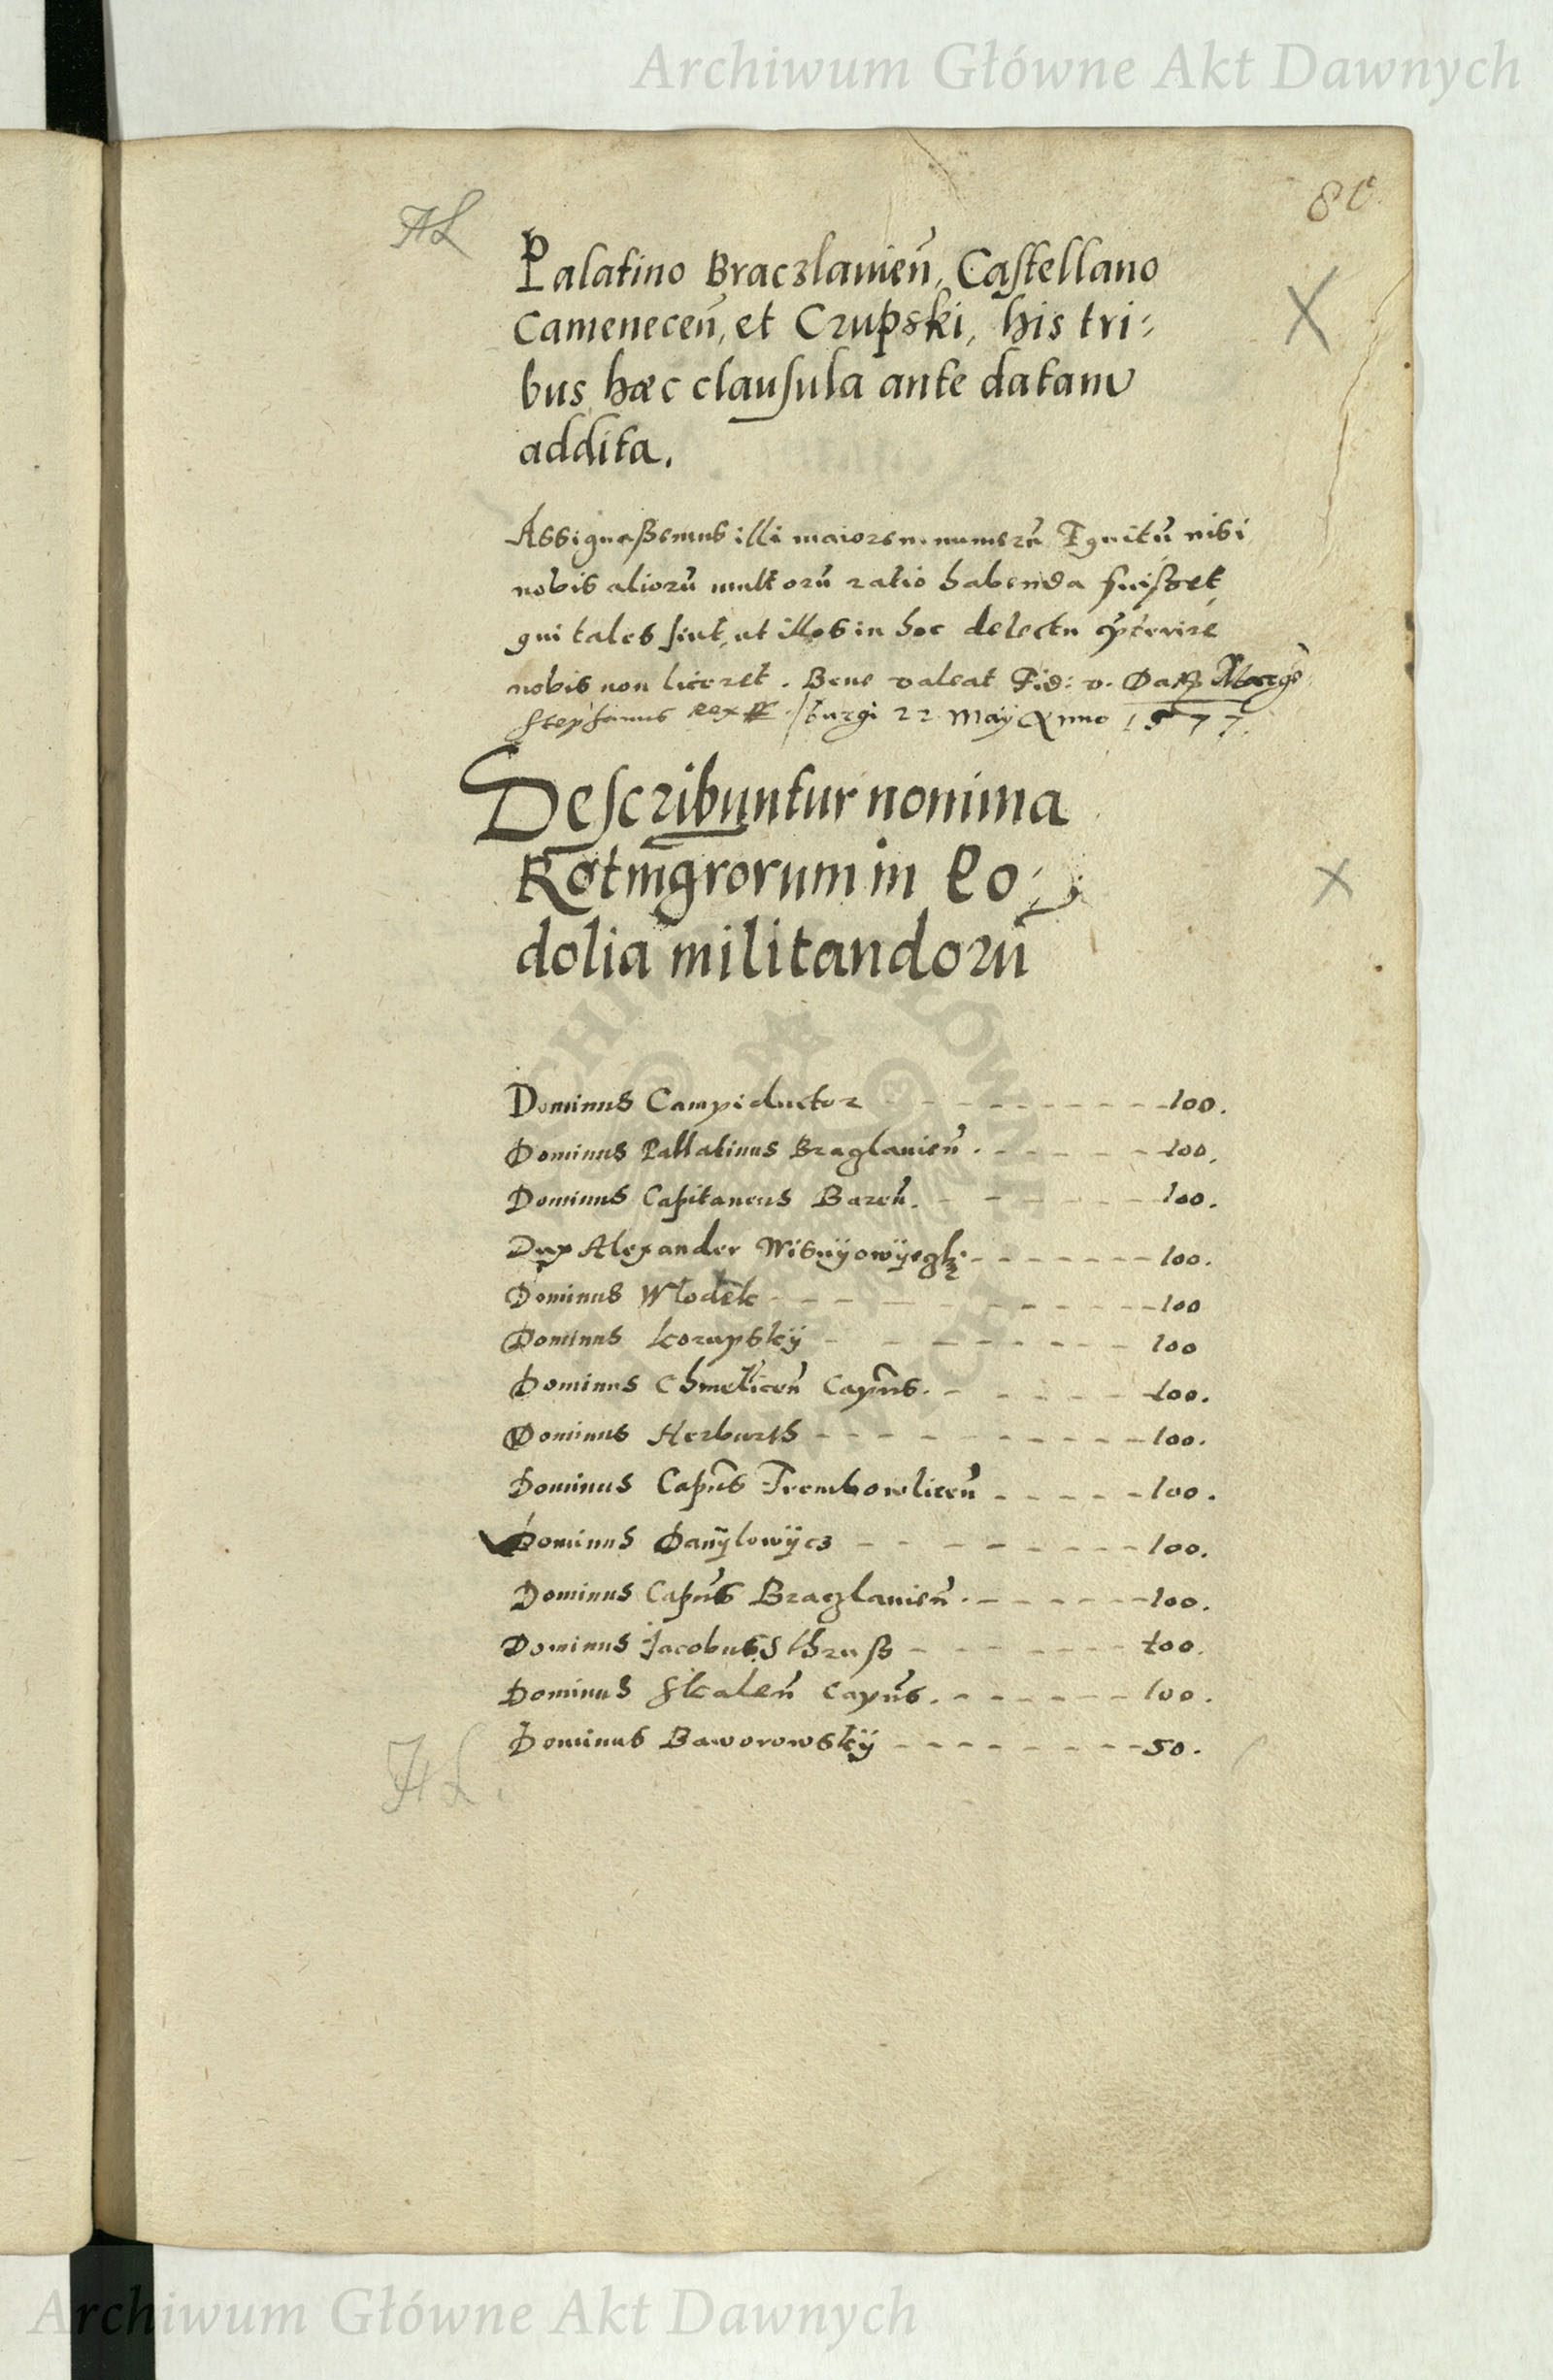 Archiwum Główne Akt Dawnych
80
Palatino Braczlauien̄, Castellano
Camenecen̄, et Crupski, his tri:
bus hæc clausula ante datam
addita.
Assignaßemus illi maiorem numerū Equitū nisi
nobis aliorū multorū ratio habenda fuisset,
qui tales sint, ut illos in hoc delectu p̃terire
nobis non liceret. Bene valeat Fid: v. Datt Marge
Stephanus Rex ſburgi 22 Maÿ Anno 1577.
Describuntur nomina
Rotmḡrorum in Po:
dolia militandorū
Dominus Campiductor 100.
Dominus Pallatinus Braglauien̄. 100.
Dominus Capitaneus Baren̄. 100.
Dux Alexander Wisnÿowÿeg 100.
Dominus Wlodek 100
Dominus korupskÿ 100
Dominus Chmelicen̄ Capn̄s. 100.
Dominus Herburth 100.
Dominus Capn̄s Trembowlicen̄ 100.
Dominus Danÿlowÿcz 100.
Dominus Capn̄s Braczlauien̄. 100.
Dominus Jacobus Sthruß 100.
Dominus Skalen̄ Capn̄s. 100.
Dominus Baworowskÿ 50.
Archiwum Główne Akt Dawnych